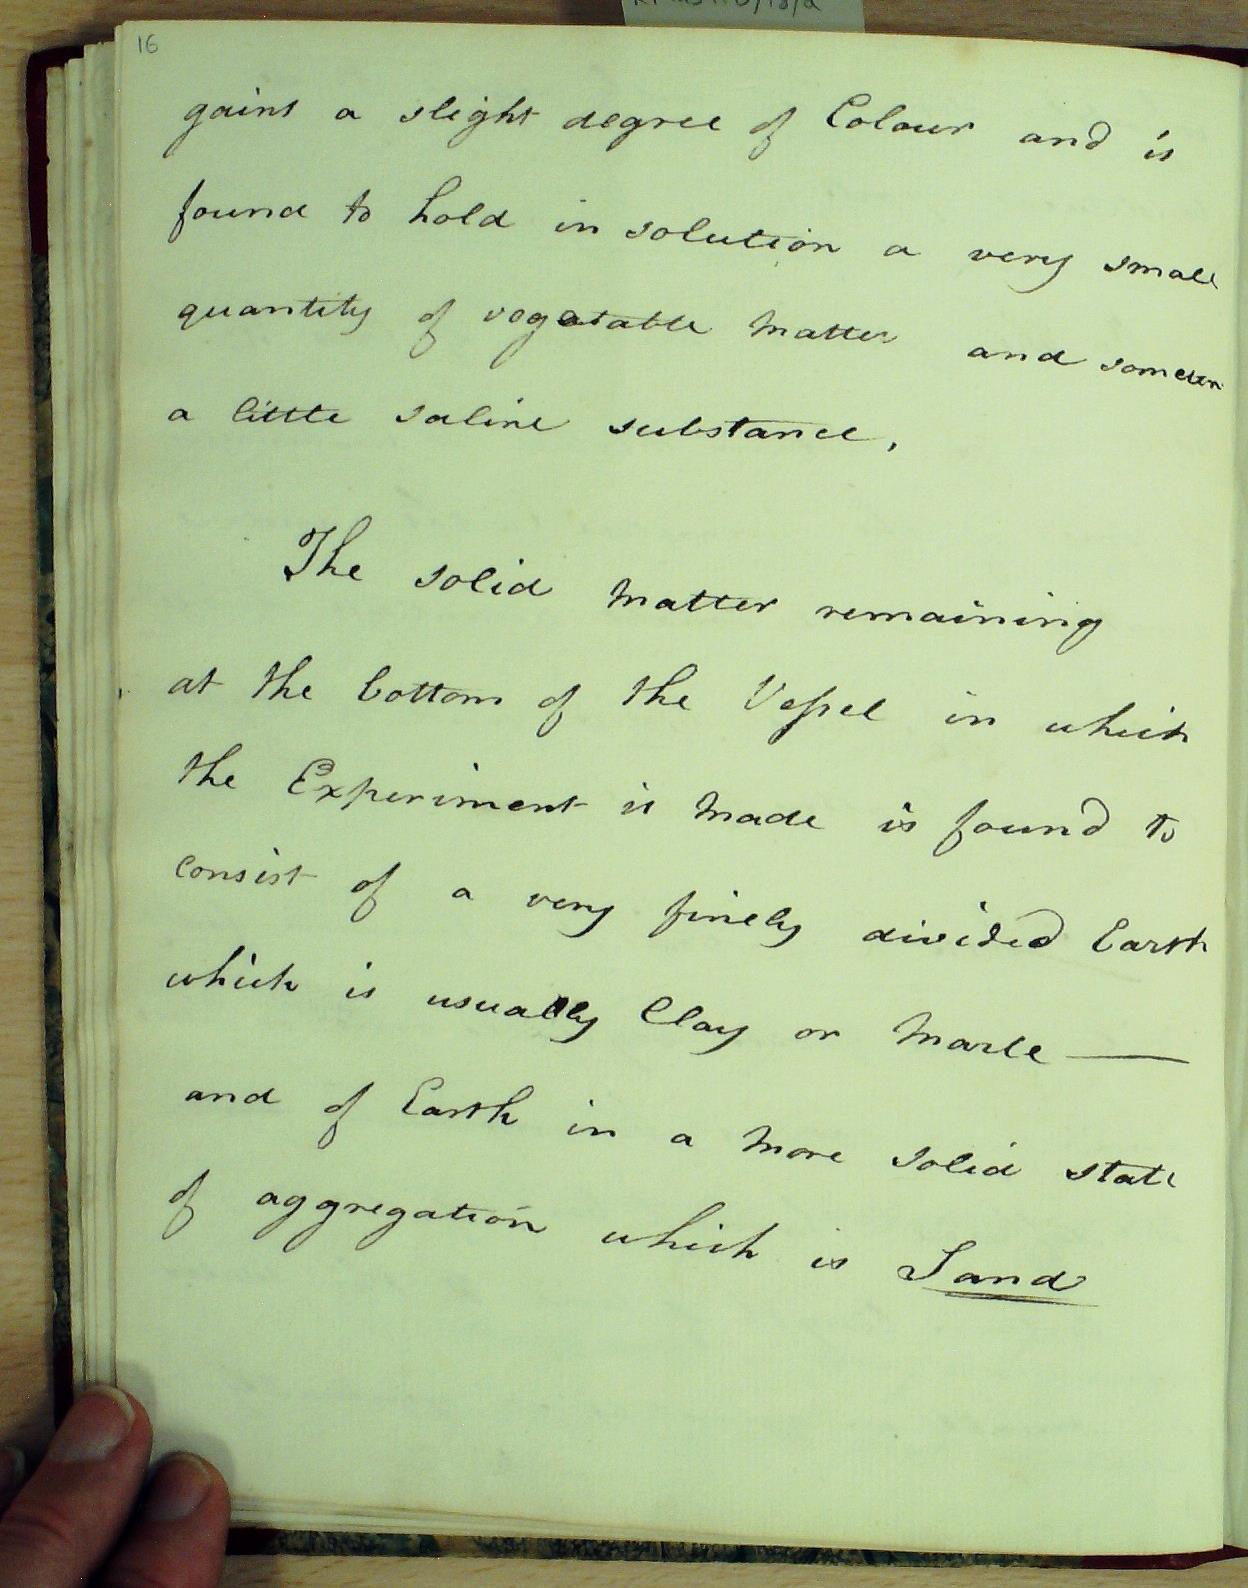 16
gains a slight degree of Colour and is
found to hold in solution a very small
quantity of vegatable matter and
a little saline substance,
The solid matter remaining
at the bottom of the Veſsel in which
the Experiment is made is found to
consist of a very finely divided Earth
which is usually Clay or Marle —
and of Earth in a more solid state
of aggregation which is Sand